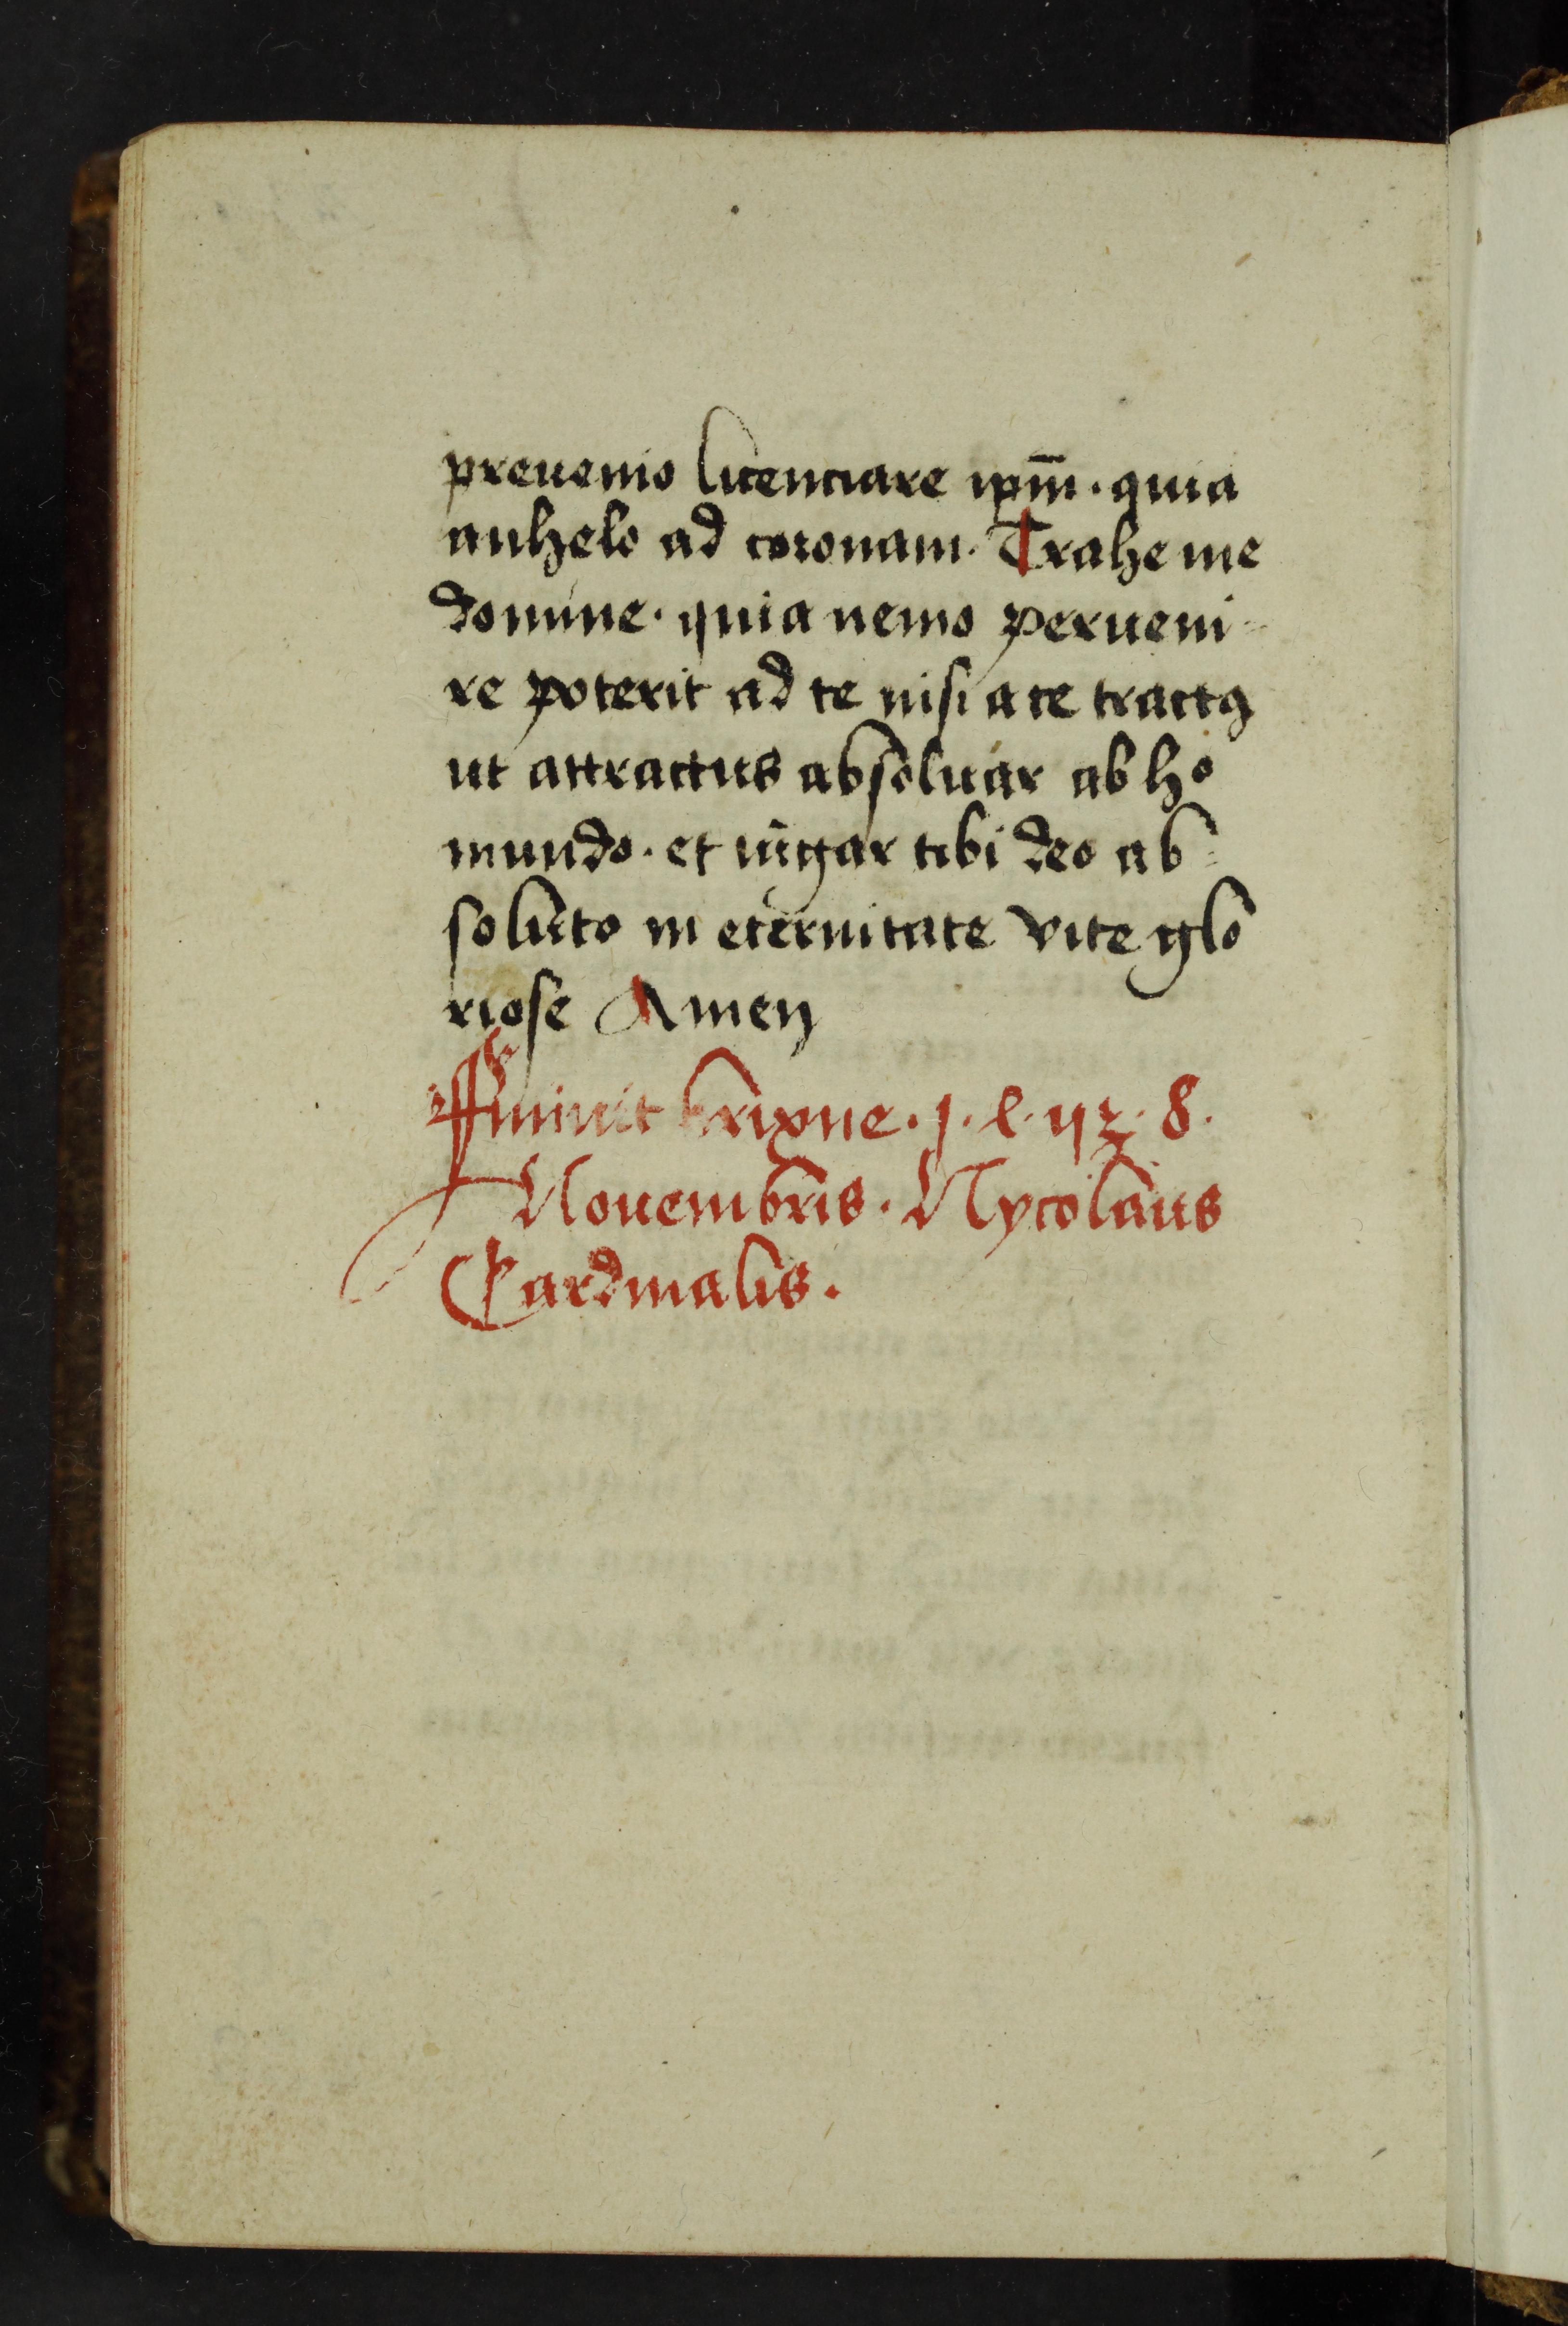 preuenio licenciare ip̅m · quia
anhelo ad coronam · Trahe me
domine · quia nemo perueni-
re poterit ad te nisi a te tractꝯ
ut attractus absoluar ab hͦ
mundo · et iu̅gar tibi deo ab-
soluto in eternitate vite glo
riose Amen
ffiniuit brixne · 1 · l · iiȝ · 8 ·
Nouembris · Nycolaus
Cardinalis ·